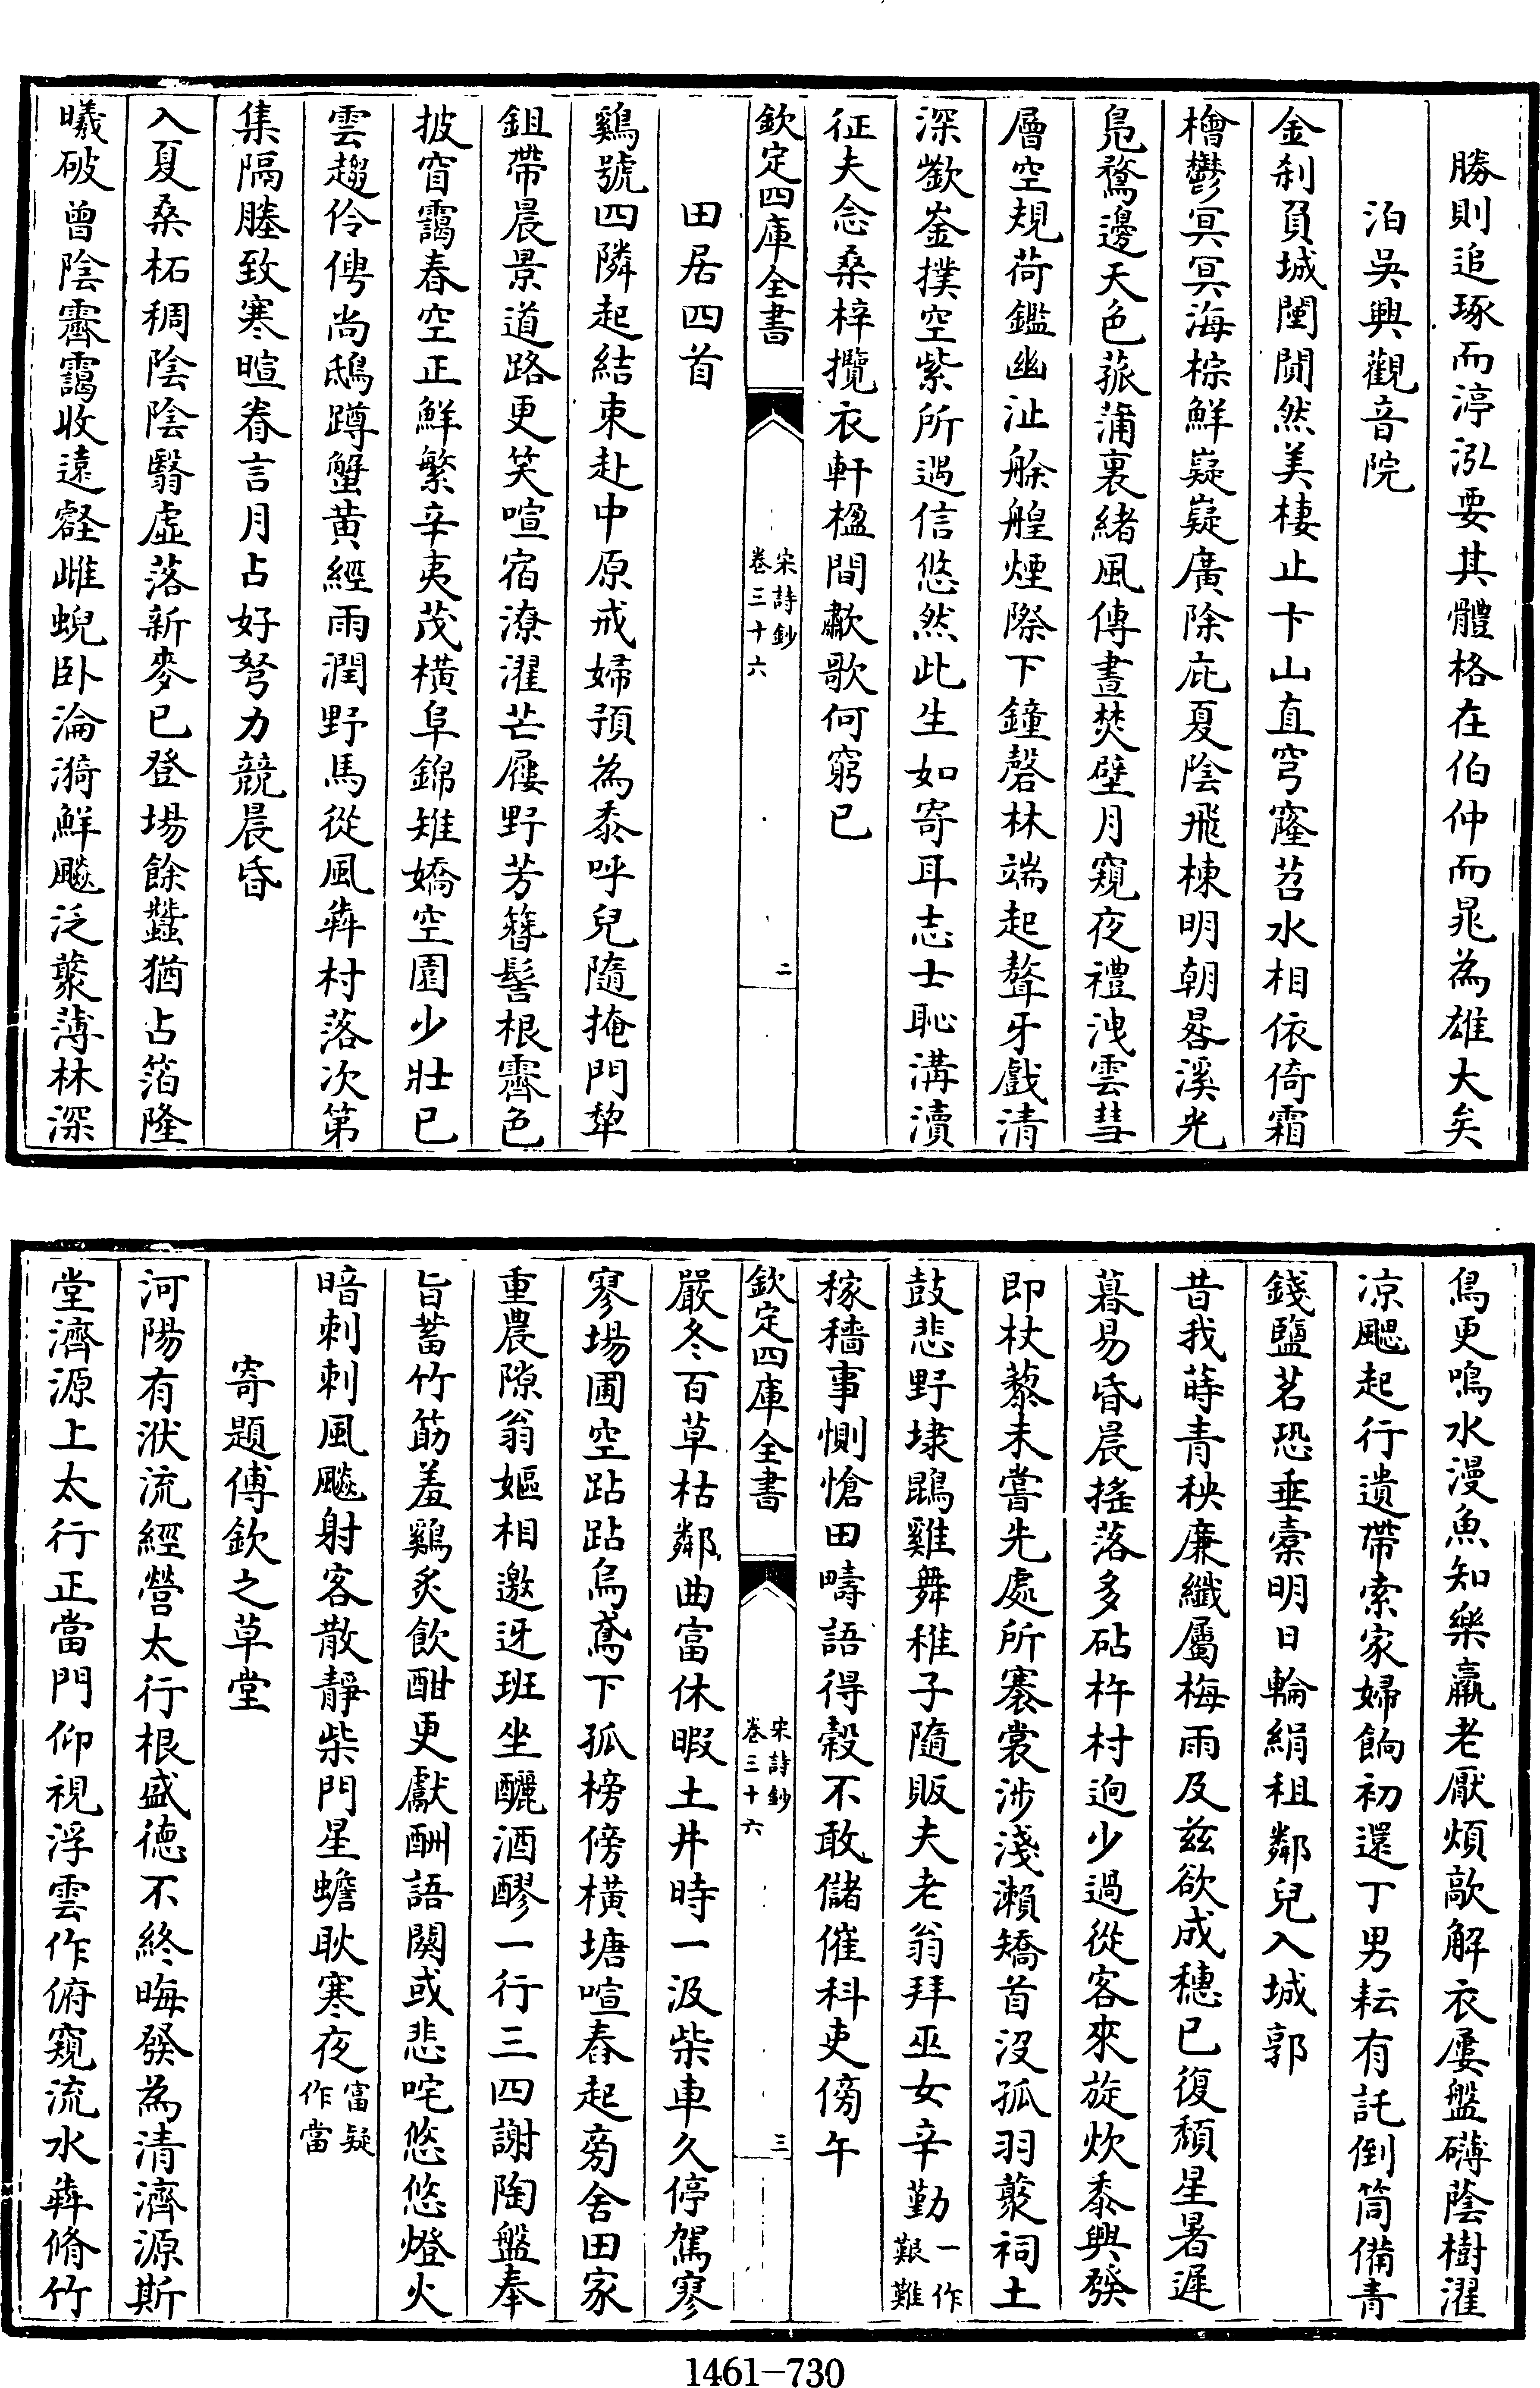 勝則追琢而渟泓要其體格在伯仲而晁為雄大矣
泊吳興觀音院
金刹負城闉閴然美棲止卞山直穹窿苕水相依倚霜
檜鬱冥冥海棕鮮嶷嶷廣除庇夏陰飛棟明朝晷溪光
鳬鶩邊天色菰蒲裏緒風傳晝焚壁月窺夜禮洩雲彗
層空規荷鑑幽沚艅艎煙際下鐘磬林端起聱牙戲清
深歘崟撲空紫所遇信悠然此生如寄耳志士恥溝瀆
征夫念桑梓攬衣軒楹間歗歌何窮已
欽定四庫全書
宋詩鈔
卷三十六
二
田居四首
鷄號四隣起結束赴中原戒婦預為黍呼兒隨掩門犂
鉏帶晨景道路更笑喧宿潦濯芒屨野芳簪髻根霽色
披窅靄春空正鮮繁辛夷茂橫阜錦雉嬌空園少壯已
雲趨伶俜尚鴟蹲蟹黄經雨潤野馬從風犇村落次第
集隔塍致寒暄眷言月占好努力競晨昏
入夏桑柘稠陰陰翳虛落新麥已登塲餘蠶猶占箔隆
曦破曾陰霽靄收遠壑雌蜺卧淪漪鮮飈泛叢薄林深
鳥更鳴水漫魚知樂羸老厭煩歊解衣屢盤礴蔭樹濯
凉颸起行遺帶索家婦餉初還丁男耘有託倒筒備青
錢鹽茗恐垂橐明日輪絹租鄰兒入城郭
昔我蒔青秧廉纖屬梅雨及兹欲成穗已復頹星暑遲
暮易昏晨搖落多砧杵村逈少過從客來旋炊黍興發
即杖藜未嘗先處所褰裳涉淺瀨矯首沒孤羽叢祠土
鼓悲野埭鶤雞舞稚子隨販夫老翁拜巫女辛勤一作艱難
稼穡事惻愴田疇語得穀不敢儲催科吏傍午
欽定四庫全書
宋詩鈔
卷三十六
三
嚴冬百草枯鄰曲富休暇土井時一汲柴車久停駕寥
寥場圃空跕跕烏鳶下孤榜傍橫塘喧舂起旁舍田家
重農隙翁嫗相邀迓班坐釃酒醪一行三四謝陶盤奉
旨蓄竹筯羞鷄炙飲酣更獻酬語闋或悲咤悠悠燈火
暗刺刺風飈射客散靜柴門星蟾耿寒夜富疑作當
寄題傅欽之草堂
河陽有洑流經營太行根盛德不終晦發為清濟源斯
堂濟源上太行正當門仰視浮雲作俯窺流水犇脩竹
1461-730